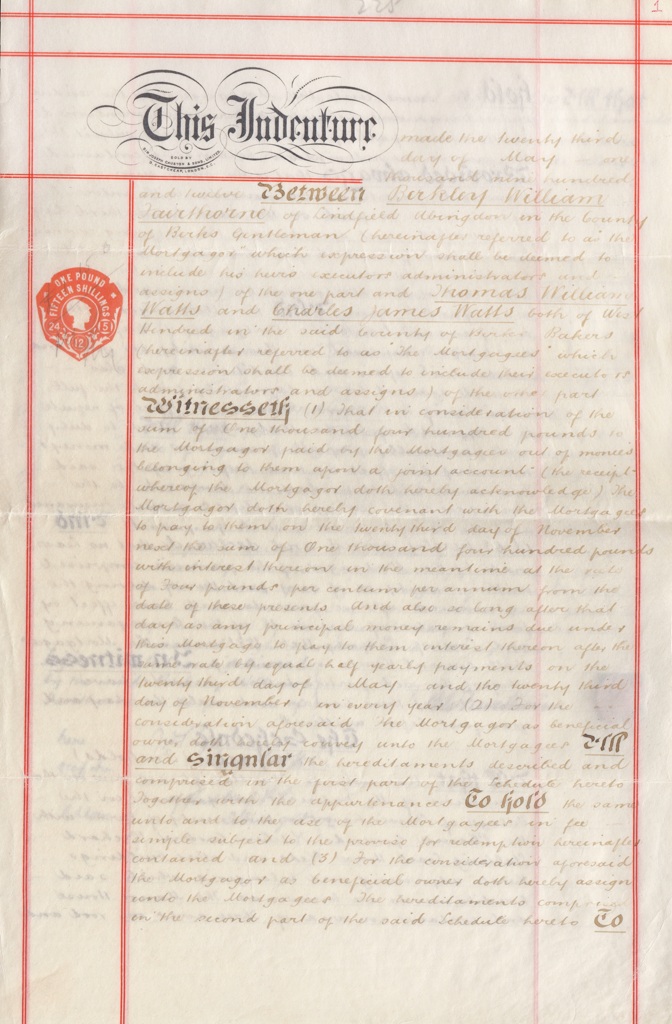 1
This Indenture
SOLD BY
made the twenty third
day of May one
thousand nine hundred
and twelve Between Berkley William
Fairthorne of Lindfield Abingdon in the County
of Berks Gentleman (hereinafter referred to as "the
Mortgagor" which expression shall be deemed to
include his heirs executors administrators and
assigns) of the one part and Thomas William
Watts and Charles James Watts both of West
Hendred in the said County of Berks Bakers
(hereinafter referred to as "the Mortgagees" which
expression shall be deemed to include their executors
administrators and assigns) of the one part
Witnesseth (1) That in consideration of the
sum of One thousand four hundred pounds to
the Mortgagor paid by the Mortgagees out of monies
belonging to them upon a joint account (the receipt
whereof the Mortgagor doth hereby acknowledge) The
Mortgagor doth hereby covenant with the Mortgagees
to pay to them on the twenty third day of November
next the sum of One thousand four hundred pounds
with interest thereon in the meantime at the rate
of Four pounds per centum per annum from the
date of these presents And also so long after that
day as any principal money remains due under
this Mortgage to pay to them interest thereon after the
same rate by equal half yearly payments on the
twenty third day of May and the twenty third
day of November in every year (2) For the
consideration aforesaid The Mortgagor as beneficial
owner doth hereby convey unto the Mortgagees All
and Singular the hereditaments described and
comprised in the first part of the Schedule hereto
Together with the appurtenances To hold the same
unto and to the use of the Mortgagees in fee
simple subject to the proviso for redemption hereinafter
contained and (3) For the consideration aforesaid
the Mortgagor as beneficial owner doth hereby assign
unto the Mortgagees The hereditaments comprised
in the second part of the said Schedule hereto To
ONE POUND
FIFTEEN SHILLINGS
24 5
12